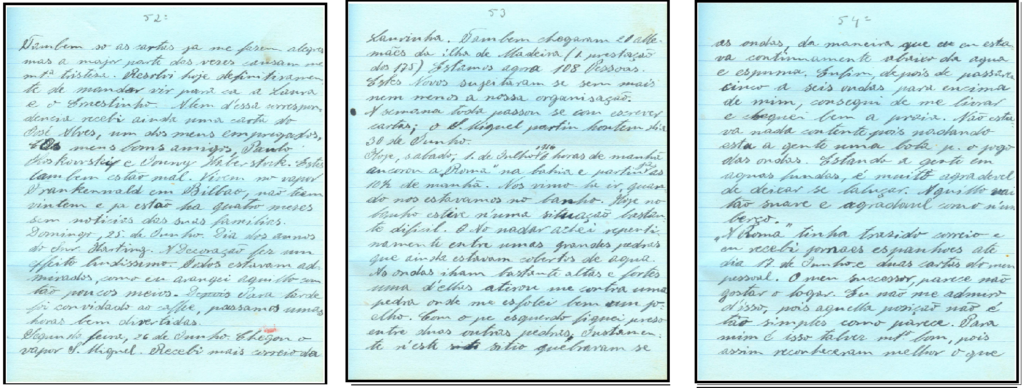 52=
Tambem so as cartas ja me fasem alegre
mas a major parte das veses causam me
mta tristesa. Resolvi hoje definitivamen
te de mandar vir para ca a Laura
e o Ernestinho. Alem d'essa correspon
dencia recebi ainda uma carta do
José Alves, um dos meus empregados,
meus bons amigos, Paulo
e
tambem estão mal. Vivem no vapor
Frankenwald em Bilbao, não teem
vintem e ja estão ha quatro meses
sem noticias das suas familias.
Domingo, 25 de Junho. Dia dos annos
do Snr. Harting. A Decoração fez um
effeito lindissimo. Todos estavam ad
mirados, como eu arangei aquillo com
tão poucos meios. Depois para tarde
fui convidado ao caffé, passamos umas
horas bem divertidas.
Segunda feira, 26 de Junho. Chegou o
vapor S. Miguel. Recebi mais correio da
53
Laurinha. Tambem chegaram 20 alle-
mães da ilha de Madeira (1. prestação
dos 175) Estamos agora 108 Pessoas.
Estes Novos sugeitaram se sem mais
nem menos a nossa organisação.
A semana toda passou se com escrever
cartas; o S. Miguel partiu hontem dia
30 de Junho.
Hoje, sabado, 1. de Julho 1916 6 horas de manhã
ancorou a "Roma" na bahia e partiu as
10½ de manhã. Nos vimo la ir, quan
do nos estavamos no banho. Hoje no
banho estive n'uma situação bastan
te dificil. O Ao nadar achei repenti
namente entre umas grandes pedras
que ainda estavam cobertos de agua.
As ondas iham bastante altas e fortes
uma d'ellas atirou me contra uma
pedra onde me esfolei bem um jo
elho. Com o pe esquerdo fiquei preso
entre duas outras pedras, Justamen
te n'este sitio quebravam se
54=
as ondas, da maneira que eu esta
va continuamente abaixo da agua
e espuma. Enfim, depois de passarem
cinco a seis ondas para encima
de mim, consegui de me livrar
e cheguei bem a praia. Não esta
va nada contente pois nadando
esta a gente uma bola p. o jogo
das ondas. Estando a gente em
aguas fundas, é muito agradavel
de deixar se baluçar. Aquillo vai
tão suave e agradavel como n'um
berço.
"A Roma" tinha trasido correio e
eu recebi jornaes espanhoes ate
dia 17 de Junho e duas cartas do meu
pessoal. O meu successor, parece não
gostar o logar. Eu não me admiro
d'isso, pois aquella posição não é
tão simples como parece. Para
mim é isso talvez mto bom, pois
assim reconheceram melhor o que